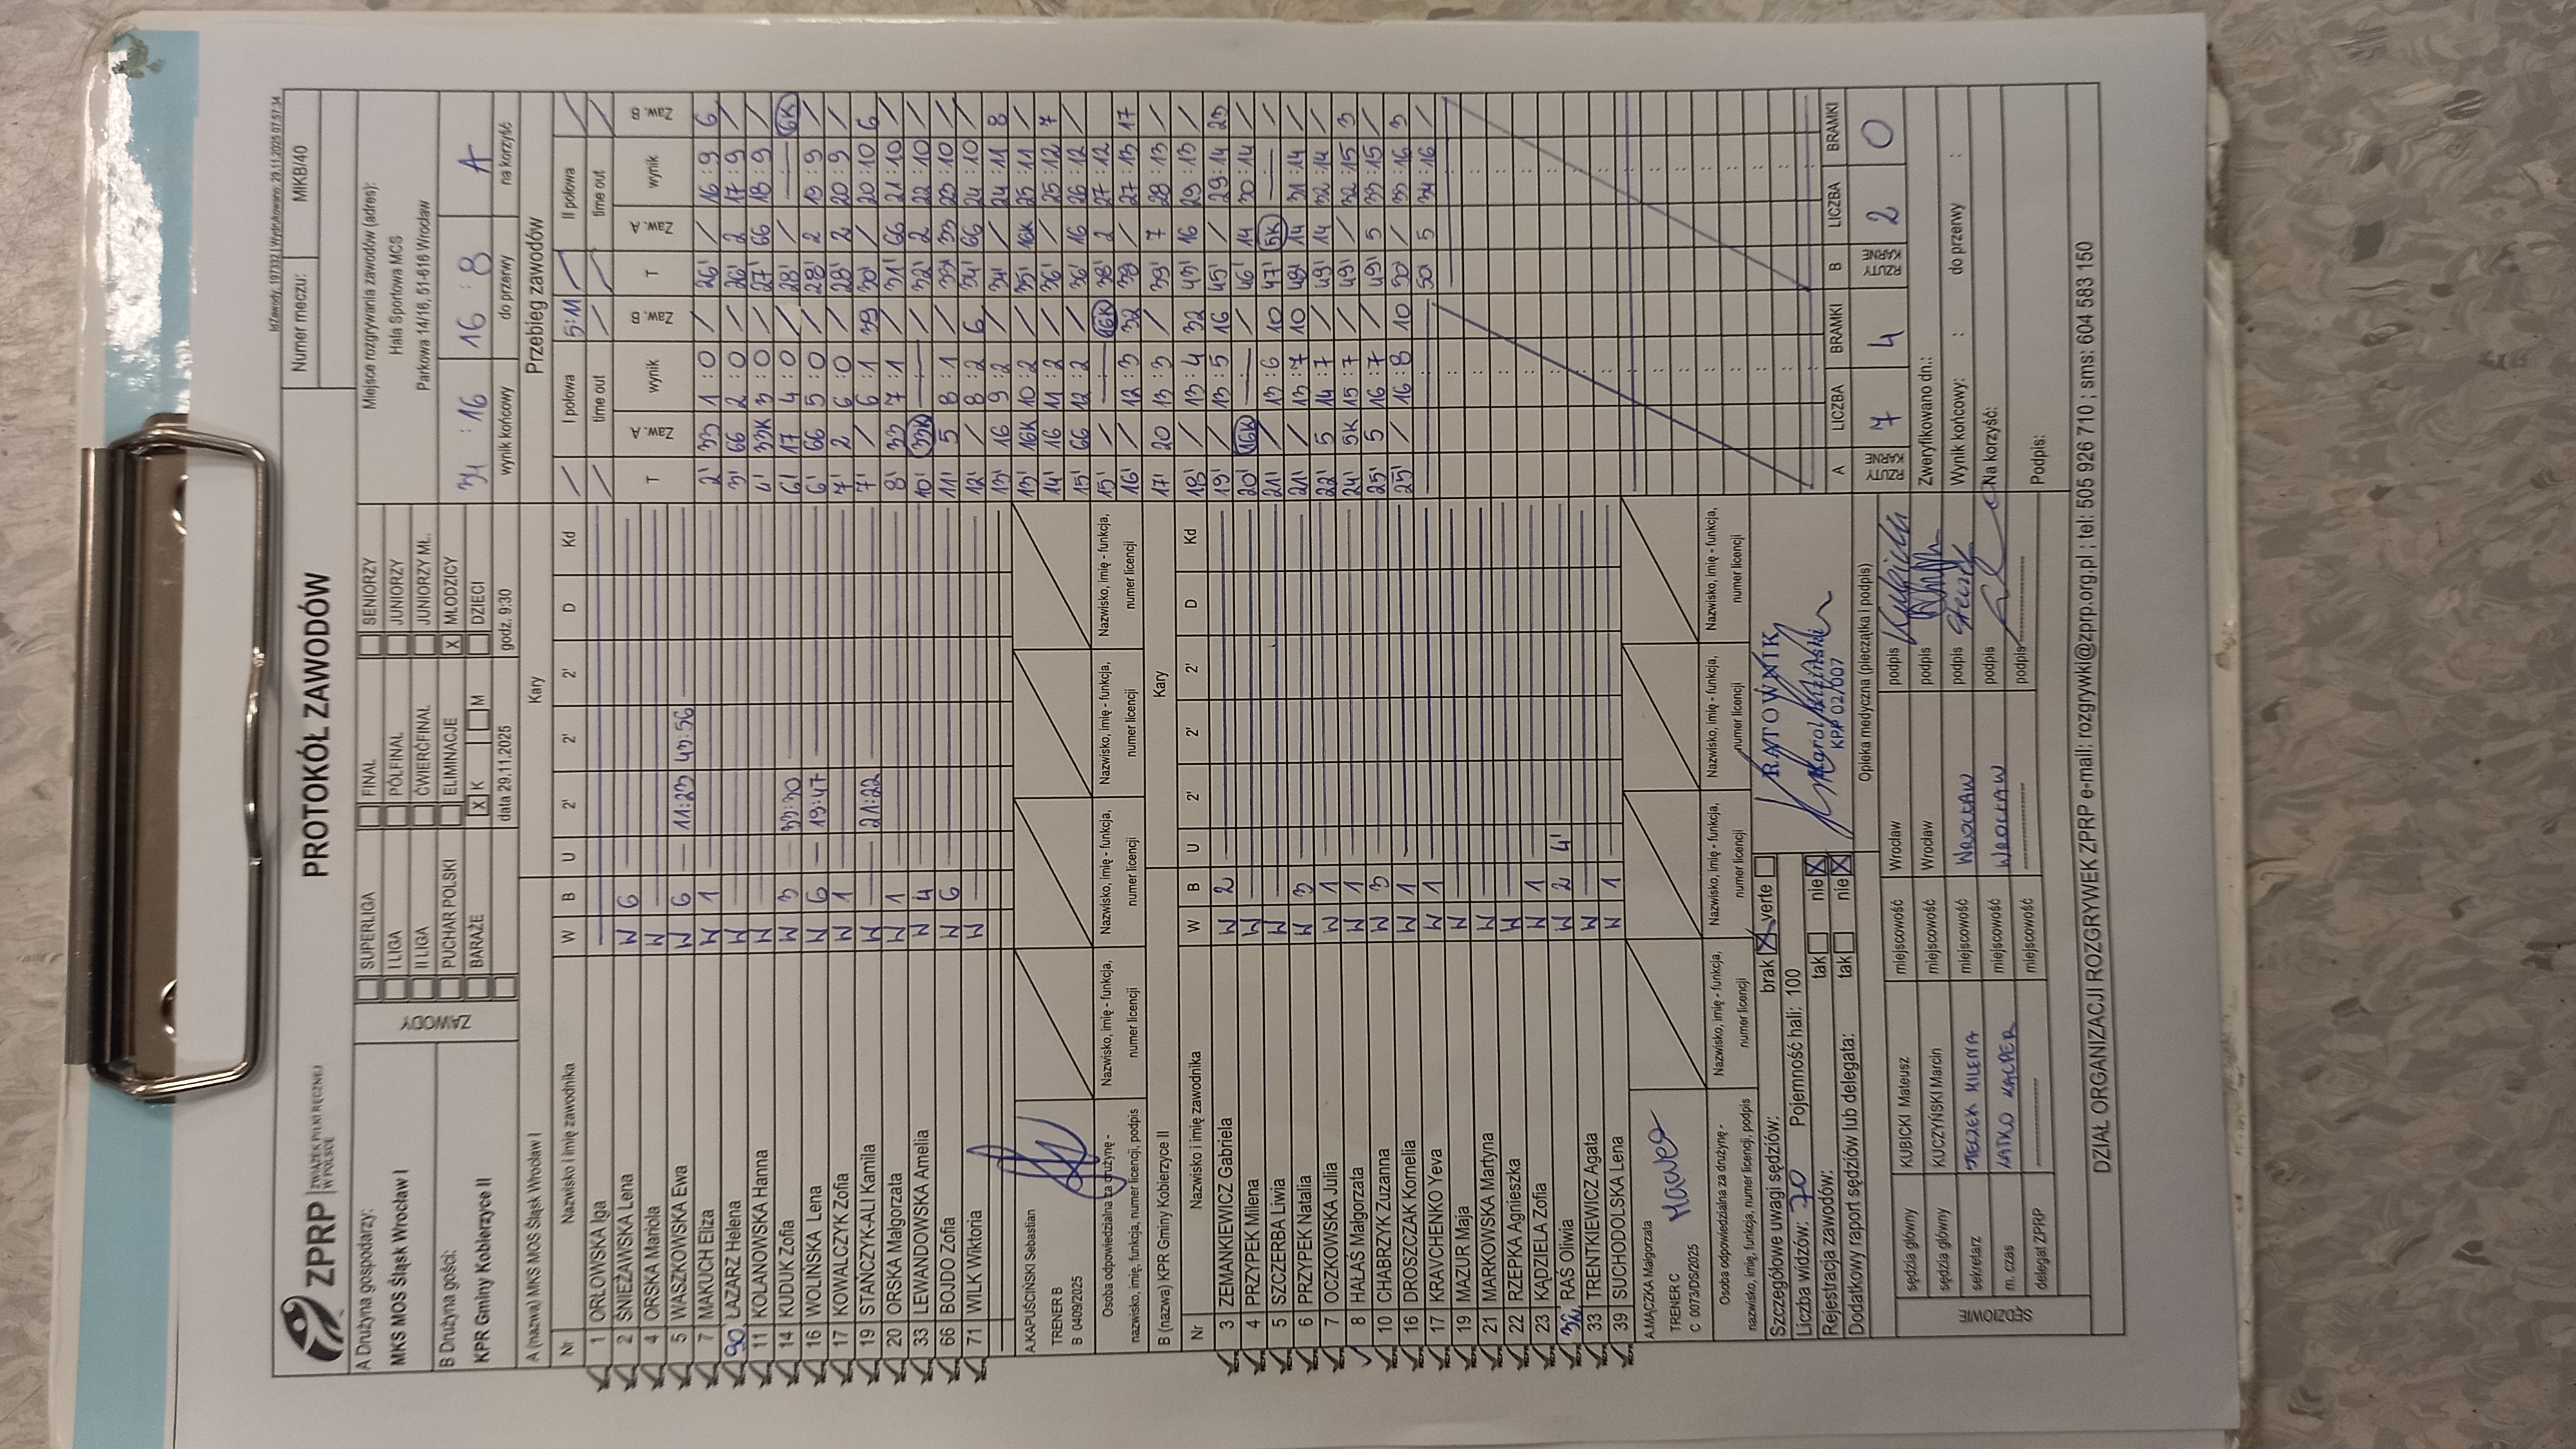 IdZawody: 197332 | Wydrukowano: 29.11.2025 07:57:34
ZPRP ZWIĄZEK PIŁKI RĘCZNEJ W POLSCE
PROTOKÓŁ ZAWODÓW
Numer meczu: MKB/40
A Drużyna gospodarzy:
MKS MOS Śląsk Wrocław I
B Drużyna gości:
KPR Gminy Kobierzyce II
ZAWODY
SUPERLIGA FINAŁ SENIORZY
I LIGA PÓŁFINAŁ JUNIORZY
II LIGA ĆWIERĆFINAŁ JUNIORZY MŁ.
PUCHAR POLSKI ELIMINACJE X MŁODZICY
BARAŻE X K M DZIECI
data 29.11.2025 godz. 9:30
Miejsce rozgrywania zawodów (adres):
Hala Sportowa MCS
Parkowa 14/16, 51-616 Wrocław
34 : 16 16 : 8 A
wynik końcowy do przerwy na korzyść
A (nazwa) MKS MOS Śląsk Wrocław I Kary
Nr Nazwisko i imię zawodnika W B U 2' 2' 2' D Kd
1 ORŁOWSKA Iga
2 ŚNIEŻAWSKA Lena W 6
4 ORSKA Mariola W
5 WASZKOWSKA Ewa W 6 11:23 43:56
7 MAKUCH Eliza W 1
90 ŁAZARZ Helena W
11 KOLANOWSKA Hanna W
14 KUDUK Zofia W 3 33:30
16 WOLIŃSKA Lena W 6 19:47
17 KOWALCZYK Zofia W 1
19 STAŃCZYK-ALI Kamila W 21:22
20 ORSKA Małgorzata W 1
33 LEWANDOWSKA Amelia W 4
66 BOJDO Zofia W 6
71 WILK Wiktoria W
A.KAPUŚCIŃSKI Sebastian
TRENER B
B 04/09/2025
Osoba odpowiedzialna za drużynę -
nazwisko, imię, funkcja, numer licencji, podpis
Nazwisko, imię - funkcja, numer licencji
Nazwisko, imię - funkcja, numer licencji
Nazwisko, imię - funkcja, numer licencji
Nazwisko, imię - funkcja, numer licencji
B (nazwa) KPR Gminy Kobierzyce II Kary
Nr Nazwisko i imię zawodnika W B U 2' 2' 2' D Kd
3 ZEMANKIEWICZ Gabriela W 2
4 PRZYPEK Milena W
5 SZCZERBA Liwia W
6 PRZYPEK Natalia W 3
7 OCZKOWSKA Julia W 1
8 HAŁAS Małgorzata W 1
10 CHABRZYK Zuzanna W 3
16 DROSZCZAK Kornelia W 1
17 KRAVCHENKO Yeva W 1
19 MAZUR Maja W
21 MARKOWSKA Martyna W
22 RZEPKA Agnieszka W
23 KĄDZIELA Zofia W 1
32 RAS Oliwia W 2 4'
33 TRENTKIEWICZ Agata W
39 SUCHODOLSKA Lena W 1
A.MĄCZKA Małgorzata
TRENER C
C 0073/DS/2025
Osoba odpowiedzialna za drużynę -
nazwisko, imię, funkcja, numer licencji, podpis
Nazwisko, imię - funkcja, numer licencji
Nazwisko, imię - funkcja, numer licencji
Nazwisko, imię - funkcja, numer licencji
Nazwisko, imię - funkcja, numer licencji
Przebieg zawodów
I połowa 5:11 II połowa
time out time out
T Zaw. A wynik Zaw. B T Zaw. A wynik Zaw. B
2' 33 1 : 0 / 26' / 16 : 9 6
3' 66 2 : 0 / 26' 2 17 : 9 /
4' 33K 3 : 0 / 27' 66 18 : 9 /
6' 17 4 : 0 / 28' / — 6K
6' 66 5 : 0 / 28' 2 19 : 9 /
7' 2 6 : 0 / 28' 2 20 : 9 /
7' / 6 : 1 39 30' / 20 : 10 6
8' 33 7 : 1 / 31' 66 21 : 10 /
10' 33K — / 32' 2 22 : 10 /
11' 5 8 : 1 / 33' 33 23 : 10 /
12' / 8 : 2 6 34' 66 24 : 10 /
13' 16 9 : 2 / 34' / 24 : 11 8
13' 16K 10 : 2 / 35' 16K 25 : 11 /
14' 16 11 : 2 / 36' / 25 : 12 7
15' 66 12 : 2 / 36' 16 26 : 12 /
15' / — 16K 38' 2 27 : 12
16' / 12 : 3 32 38' / 27 : 13 17
17' 20 13 : 3 / 39' 7 28 : 13 /
18' / 13 : 4 32 43' 16 29 : 13 /
19' / 13 : 5 16 45' / 29 : 14 23
20' 16K — / 46' 14 30 : 14 /
21' / 13 : 6 10 47' 5K — /
21' / 13 : 7 10 48' 14 31 : 14 /
22' 5 14 : 7 / 49' 14 32 : 14 /
24' 5K 15 : 7 / 49' / 32 : 15 3
25' 5 16 : 7 / 49' 5 33 : 15 /
25' / 16 : 8 10 50' / 33 : 16 3
50' 5 34 : 16 /
A LICZBA BRAMKI B LICZBA BRAMKI
RZUTY KARNE 7 4 RZUTY KARNE 2 0
Szczegółowe uwagi sędziów: brak X verte
Liczba widzów: 70 Pojemność hall: 100
Rejestracja zawodów: tak nie X
Dodatkowy raport sędziów lub delegata: tak nie X
RATOWNIK
KPP 02/007
Opieka medyczna (pieczątka i podpis)
SĘDZIOWIE
sędzia główny KUBICKI Mateusz miejscowość Wrocław podpis
sędzia główny KUCZYŃSKI Marcin miejscowość Wrocław podpis
sekretarz miejscowość WROCŁAW podpis
m. czas miejscowość WROCŁAW podpis
delegat ZPRP miejscowość podpis
Zweryfikowano dn.:
Wynik końcowy: : do przerwy :
Na korzyść:
Podpis:
DZIAŁ ORGANIZACJI ROZGRYWEK ZPRP e-mail: rozgrywki@zprp.org.pl ; tel: 505 926 710 ; sms: 604 583 150